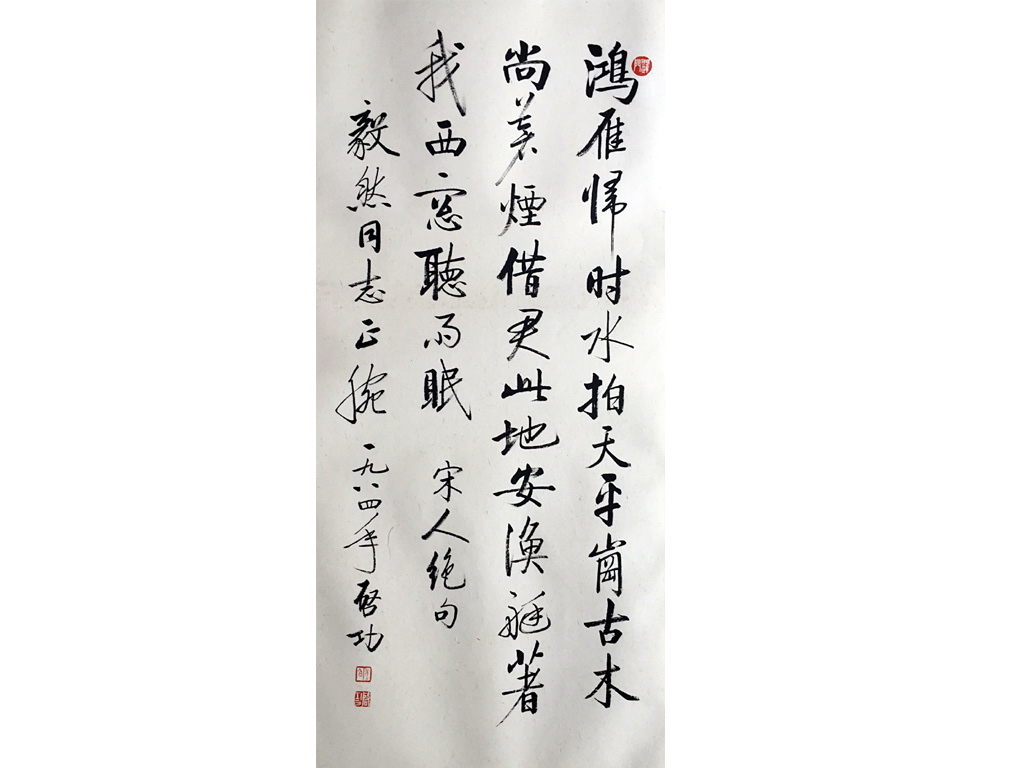 鴻雁帰时水拍天平崗古木
尚寒煙借君此地安漁艇著
我西窓聽雨眠 宋人绝句
毅然同志正腕 一九八四年 启功